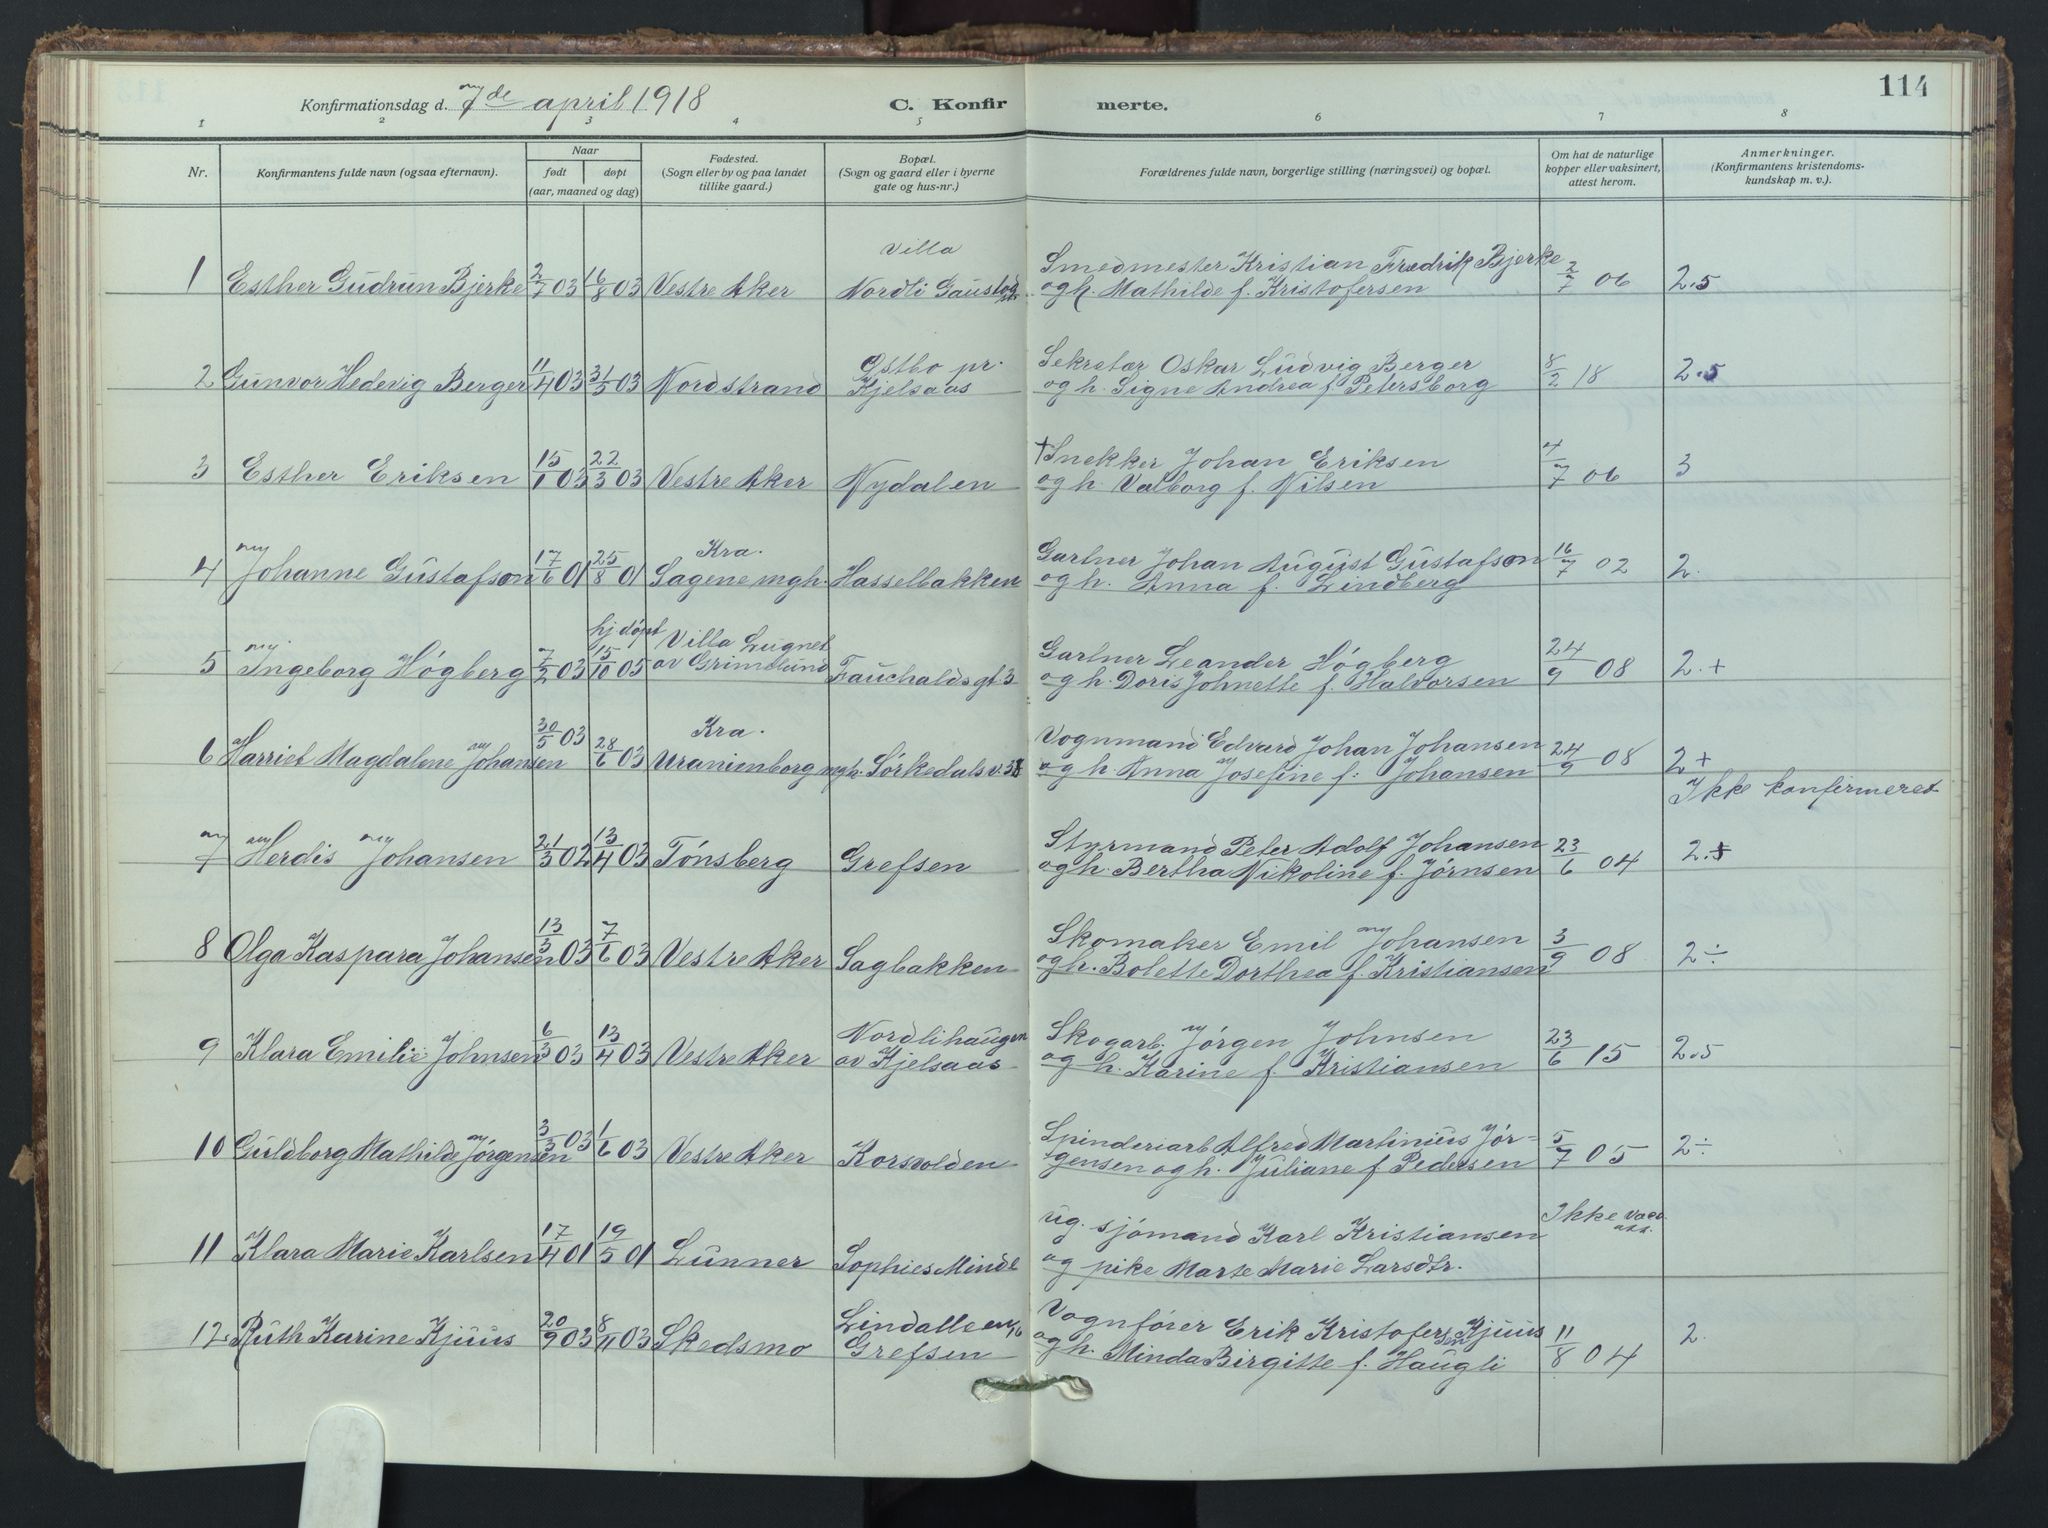 114
Konfirmationsdag d. 7de april 1918
C. Konfirmerte.
1 2 3 4 5 6 7 8
Nr.
Konfirmantens fulde navn (ogsaa efternavn).
Naar
født døpt
(aar, maaned og dag)
Fødested.
(Sogn eller by og paa landet
tillike gaard.)
Bopæl.
(Sogn og gaard eller i byerne
gate og hus-nr.)
Forældrenes fulde navn, borgerlige stilling (næringsvei) og bopæl.
Om hat de naturlige
kopper eller vaksinert,
attest herom.
Anmerkninger.
(Konfirmantens kristendoms-
kundskap m. v.).
Villa Smedmester Kristian Fredrik Bjerke
1 Esther Gudrun Bjerke 2/7 03 16/8 03 Vestre Aker Nordli og h. Mathilde f. Kristofersen 2/7 06 2.5
Østbo pr. Sekretær Oskar Ludvig Berger
2 Gunvor Hedevig Berger 11/4 03 31/5 03 Nordstrand Kjelsaas og h. Signe Andrea f. Petersborg 8/2 18 2.5
+ Snekker Johan Eriksen
3 Esther Eriksen 15/1 03 22/3 03 Vestre Aker Nydalen og h. Valborg f. Nilsen 4/7 06 3
Kra. Gartner Johan August Gustafson
4 Johanne Gustafson 17/6 01 25/8 01 Sagene mgh. Hasselbakken og h. Anna f. Lindberg 16/7 02 2.
hj. døpt Villa Lugnet Gartner Leander Høgberg
5 Ingeborg Høgberg 7/2 03 15/10 05 av Grimelund Fauchaldsgt 3 og h. Doris Johnette f. Halvorsen 24/9 08 2.+
Kra. Vognmand Edvard Johan Johansen
6 Harriet Magdalene Johansen 30/5 03 28/6 03 Uranienborg mgh. Sørkedalsv. og h. Anna Josefine f. Johansen 24/9 08 2+
Ikke konfirmeret
Styrmand Peter Adolf Johansen
7 Herdis Johansen 21/3 02 13/4 03 Tønsberg Grefsen og h. Bertha Nikoline f. Jørnsen 23/6 04
Skomaker Emil Johansen
8 Olga Kaspara Johansen 13/3 03 7/6 03 Vestre Aker Sagbakken og h. Bolette Dorthea f. Kristiansen 3/9 08 2÷
Nordlihaugen Skogarb. Jørgen Johnsen
9 Klara Emilie Johnsen 6/3 03 13/4 03 Vestre Aker av Kjelsaas og h. Karine f. Kristiansen 23/6 15 2.5
Spinderiarb Alfred Martinius Jør-
10 Guldborg Mathilde Jørgensen 3/3 03 1/6 03 Vestre Aker Korsvolden gensen og h. Juliane f Pedersen 5/7 05 2÷
ug. sjømand Karl Kristiansen Ikke
11 Klara Marie Karlsen 17/4 01 19/5 01 Lunner Sophies Minde og pike Marte Marie Larsdtr.
Lindalleen Vognfører Erik Kristofersen Kjuus
12 Ruth Karine Kjuus 20/9 03 8/11 03 Skedsmo Grefsen og h. Minda Birgitte f. Haugli 11/8 04 2.